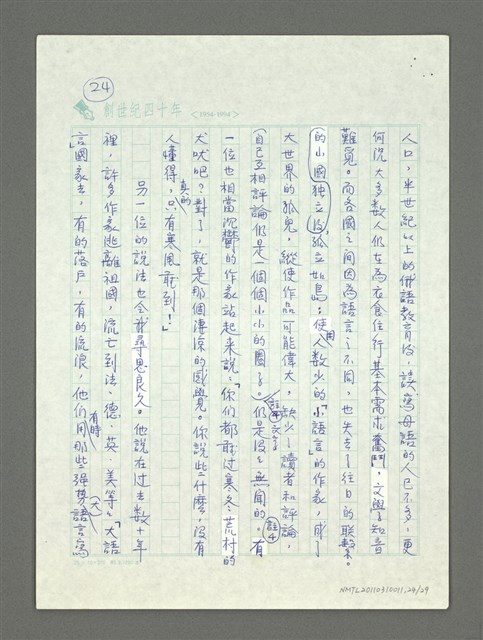 24
創世紀四十年
<1954-1994>
人口，半世紀以上的併語教育後，讀寫母語的人已不多，更
何況大多数人仍在為衣食住行基本需求奮鬥，文學知音
難覓。而各國之間因為語言之不同，也失去了往日的联繫。
的小國独立後孤立如鳥；使用人数少的「小語言」的作家，成了
大世界的孤兒，縱使作品可能偉大，缺少了讀者和評論，
（自己互相評論仍是一個個小小的圈子。）仍是沒沒無聞的。有
註4
一位也相當沉鬱的作家站起來說：「你們都敢过寒冬荒村的
犬吠吧？對了，就是那個淒涼的感覺。你說些什麼，沒有
人真的懂得，只有寒風聽到！」
另一位的說法也令我尋思良久。他說在过去数十年
裡，許多作家逃離祖國，流亡到法、德、英、美等「大語
言」國家去，有的落户，有的流浪，他們有時用那些强势（大）語言寫
NMTL20110310011,24/29